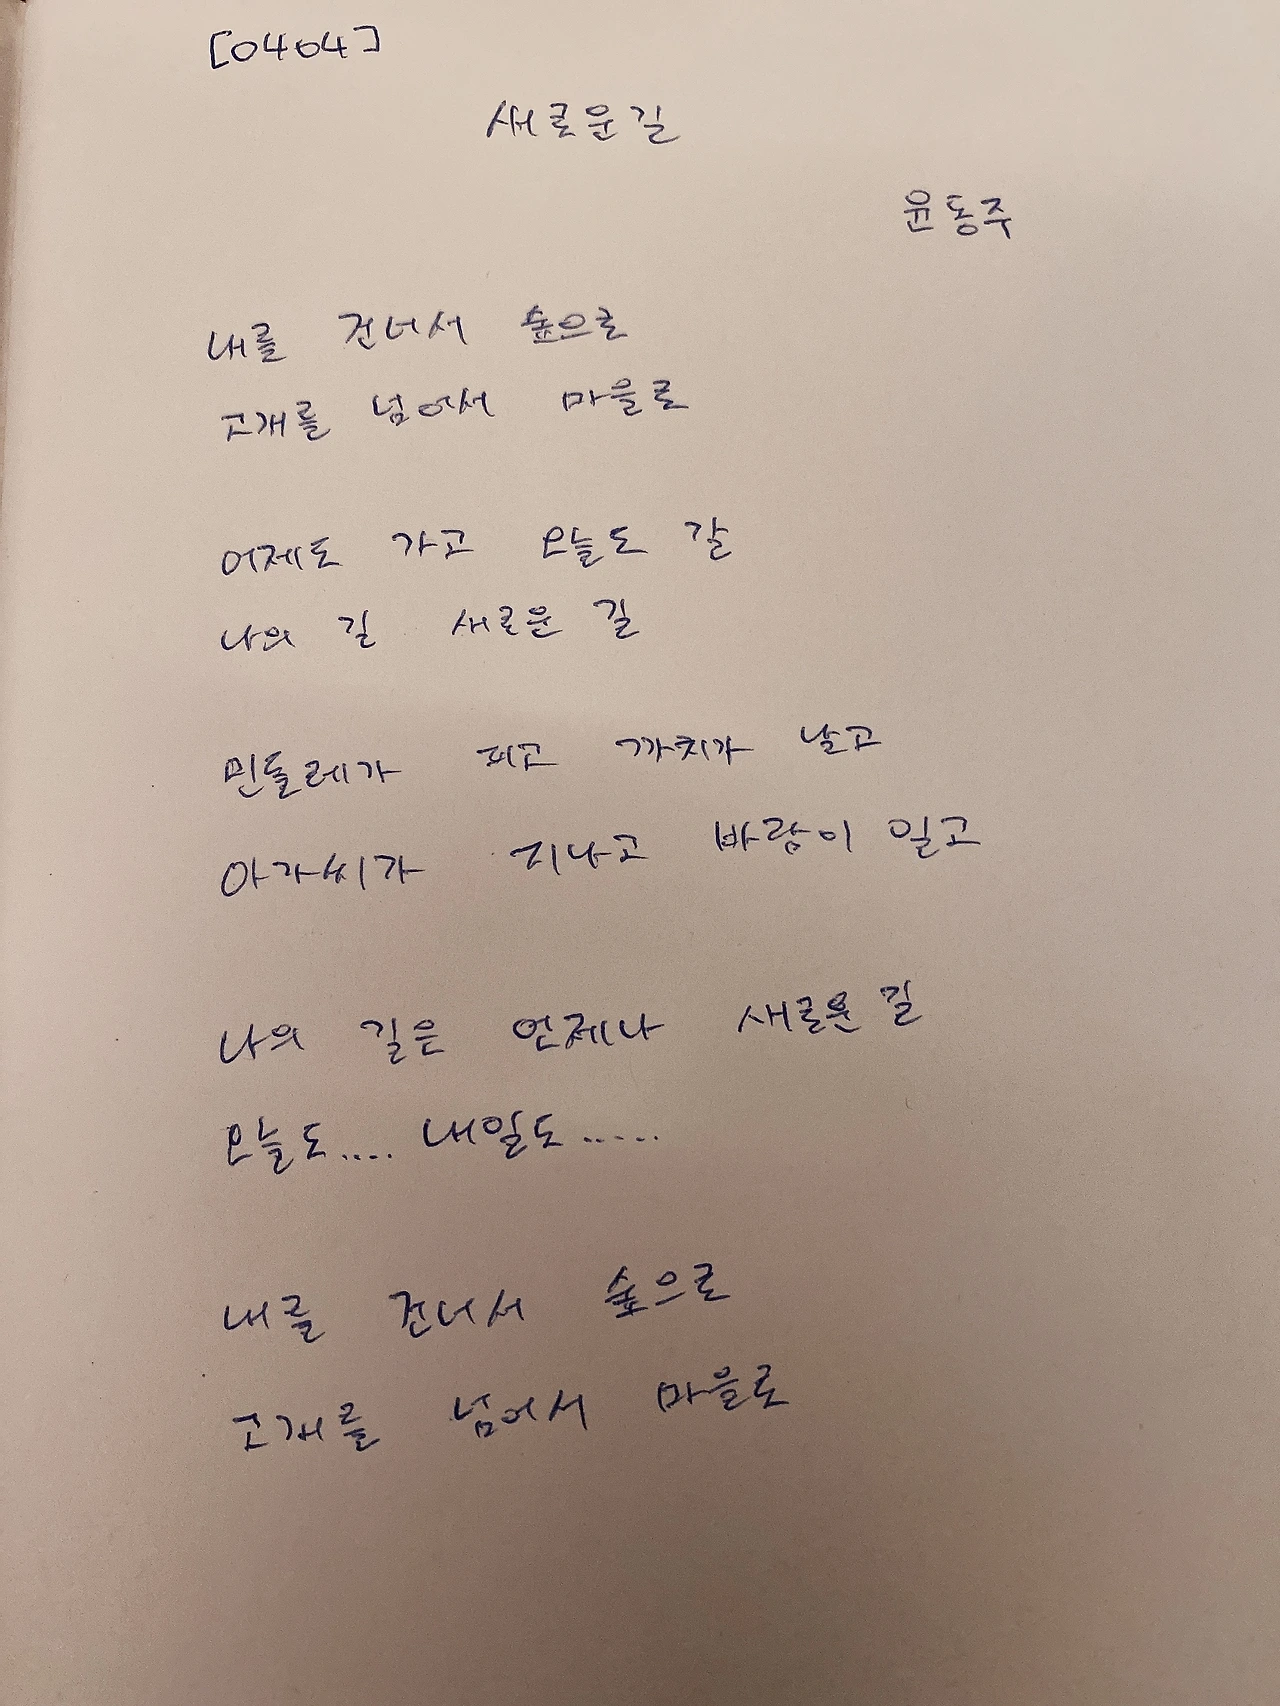 [0404]
새로운길
윤동주
내를 건너서 숲으로
고개를 넘어서 마을로
어제도 가고 오늘도 갈
나의 길 새로운 길
민들레가 피고 까치가 날고
아가씨가 지나고 바람이 일고
나의 길은 언제나 새로운 길
오늘도.... 내일도.....
내를 건너서 숲으로
고개를 넘어서 마을로